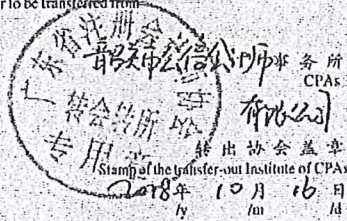 r to be transferred from
韶关市公信会计师事务所
CPAs
有限公司
广东省注册会计师协会
转会转所
专用章
转出协会盖章
Stamp of the transfer-out Institute of CPAs
2018年10月16日
/y /m /d